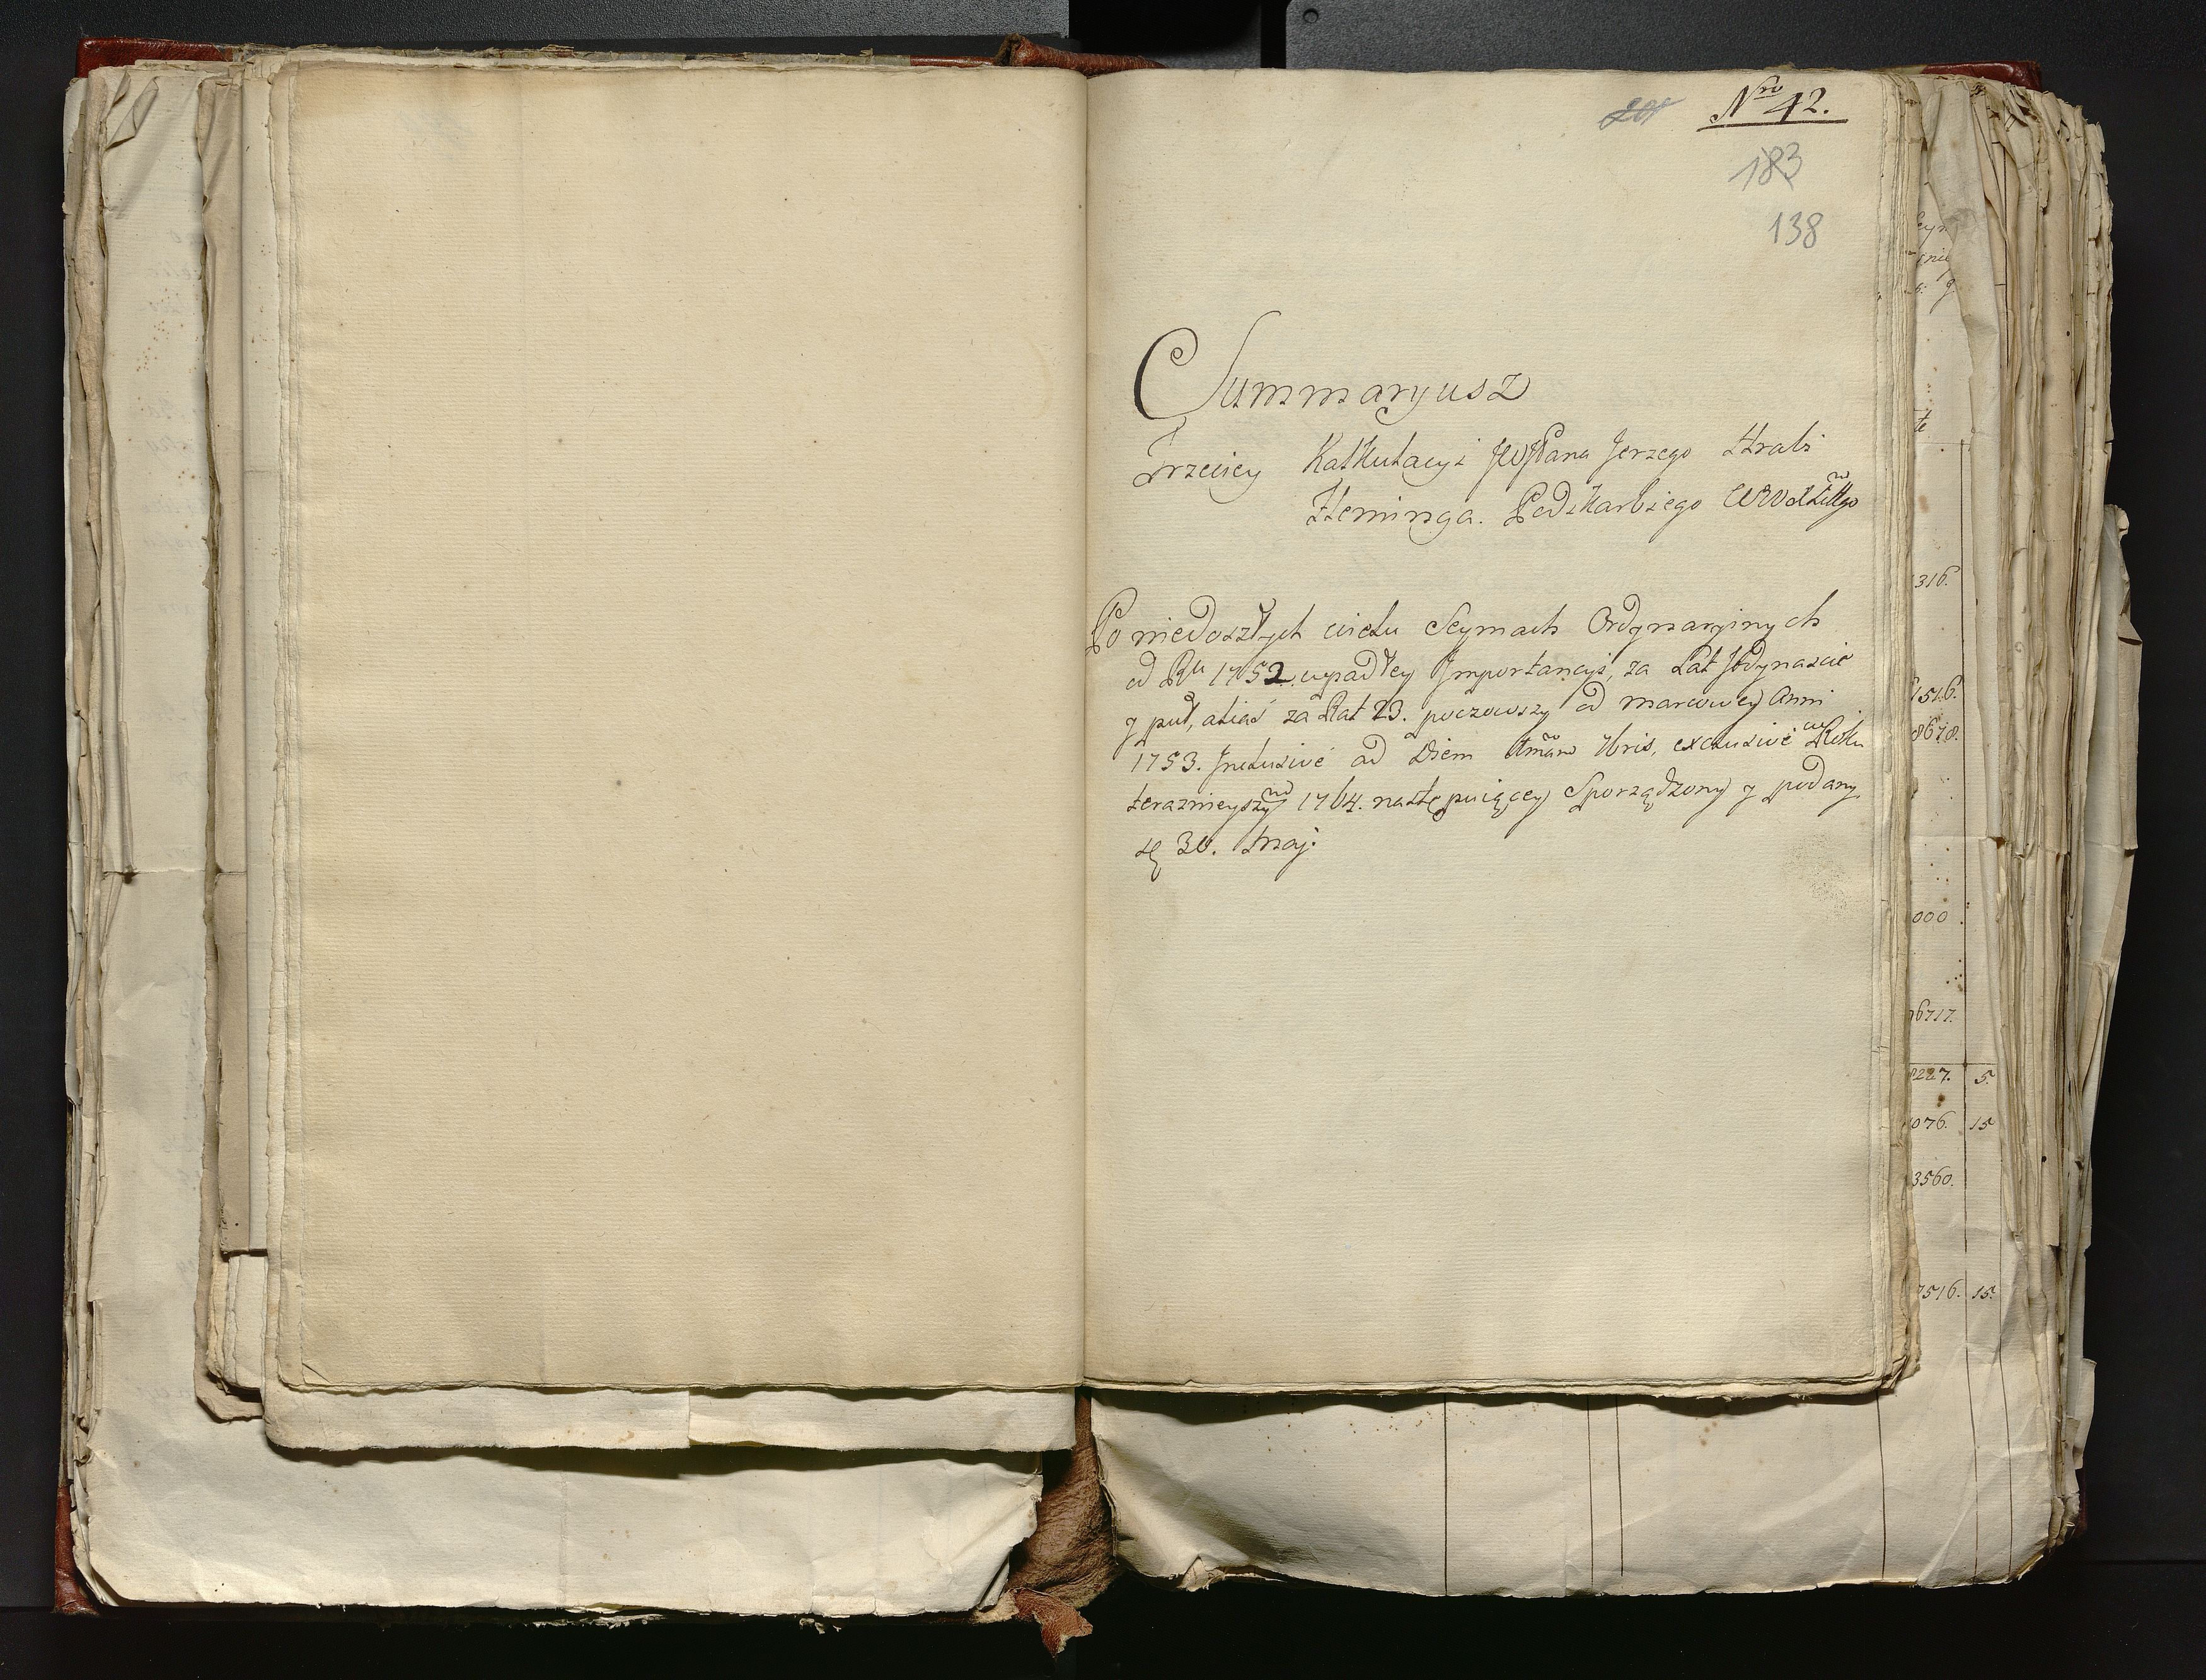 201 Nro 42.
183
138
Summaryusz
Trzeciey Kalkulacyi JWJPana Jerzego Hrabi
Fleminga. Podskarbiego WWoXLittgo
Po niedoszłych wielu Seymach Ordynaryinych
od Ru 1752. wypadłey Importancyi, za Lat Jedynascie
y puł, alias za Rat 23. począwszy od marcowey Anni
1753. Inclusivé ad Diem 7bris, exclusivé w Roku
teraznieyszym 1764. następuiący Sporządzony y podany
30. Maji
316.
1516.
8678.
000
6717.
8227. 5.
1076. 15
3560.
7516. 15.